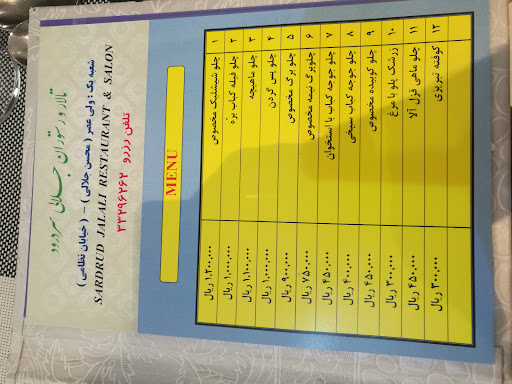 تالار و رستوران جلالی سردرود
شعبه یک : ولی عصر ( محسن جلالی ) – ( خیابان نظامی )
SARDRUD JALALI RESTAURANT & SALON
تلفن رزرو ۳۳۲۹۶۲۶۲
MENU
۱ چلو شیشلیک مخصوص ۱,۲۰۰,۰۰۰ ریال
۲ چلو فیله کباب بره ۱,۰۰۰,۰۰۰ ریال
۳ چلو ماهیچه ۱,۱۰۰,۰۰۰ ریال
۴ چلو پس گردن ۱,۰۰۰,۰۰۰ ریال
۵ چلو برگ مخصوص ۹۰۰,۰۰۰ ریال
۶ چلوبرگ نیمه مخصوص ۷۵۰,۰۰۰ ریال
۷ چلو جوجه کباب با استخوان ۴۵۰,۰۰۰ ریال
۸ چلو جوجه کباب سیخی ۴۰۰,۰۰۰ ریال
۹ چلو کوبیده مخصوص ۴۵۰,۰۰۰ ریال
۱۰ زرشک پلو با مرغ ۳۰۰,۰۰۰ ریال
۱۱ چلو ماهی قزل آلا ۴۵۰,۰۰۰ ریال
۱۲ کوفته تبریزی ۳۰۰,۰۰۰ ریال